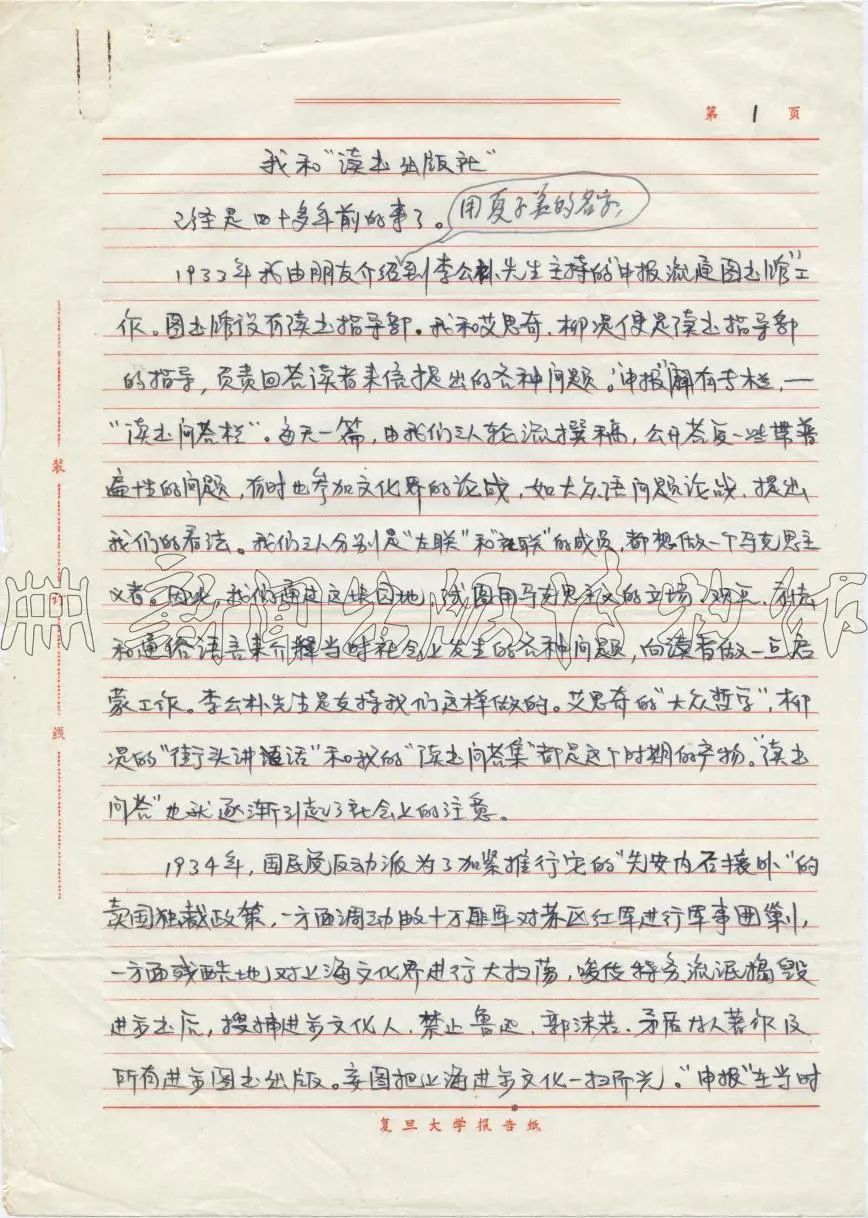 第 1 页
我和“读书出版社”
已经是四十多年前的事了。
用夏子美的名字,
1933年我由朋友介绍到李公朴先生主持的“申报流通图书馆”工
作。图书馆设有读书指导部。我和艾思奇、柳湜便是读书指导部
的指导,负责回答读者来信提出的各种问题。“申报”辟有专栏,—
“读书问答栏”。每天一篇,由我们三人轮流撰稿,公开答复一些带普
遍性的问题,有时也参加文化界的论战,如大众语问题论战,提出
我们的看法。我们三人分别是“左联”和“社联”的成员,都想做一个马克思主
义者。因此,我们通过这块园地,试图用马克思主义的立场、观点、方法
和通俗语言来介释当时社会上发生的各种问题,向读者做一点启
蒙工作。李公朴先生是支持我们这样做的。艾思奇的“大众哲学”,柳
湜的“街头讲话”和我的“读书问答集”都是这个时期的产物。“读书
问答”也就逐渐引起了社会上的注意。
1934年,国民党反动派为了加紧推行它的“先安内后攘外”的
卖国独裁政策,一方面调动数十万匪军对苏区红军进行军事围剿,
一方面残酷地对上海文化界进行大扫荡,唆使特务流氓捣毁
进步书店,搜捕进步文化人,禁止鲁迅、郭沫若、矛盾等人著作及
所有进步图书出版。妄图把上海进步文化一扫而光。“申报”在当时
装
订
线
复旦大学报告纸
新闻出版博物馆